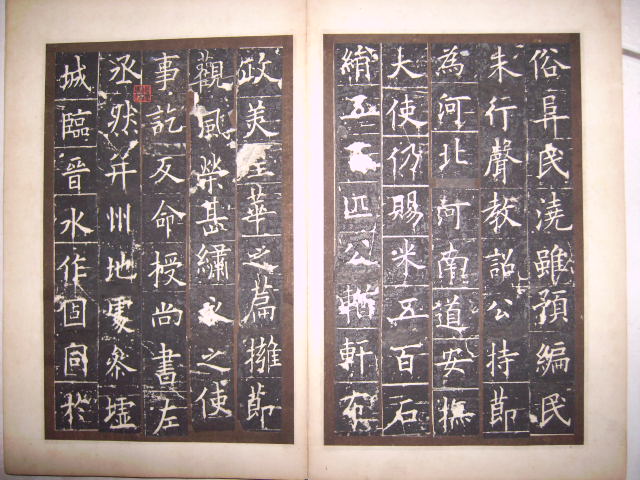 俗阜民澆雖預編民
未行聲教詔公持節
為河北河南道安撫
大使仍賜米五百石
絹五匹公輶軒布
政美華之篇擁節
觀風榮甚繡衣之使
事訖反命授尚書左
丞然并州地處參墟
城臨晉水作固同於